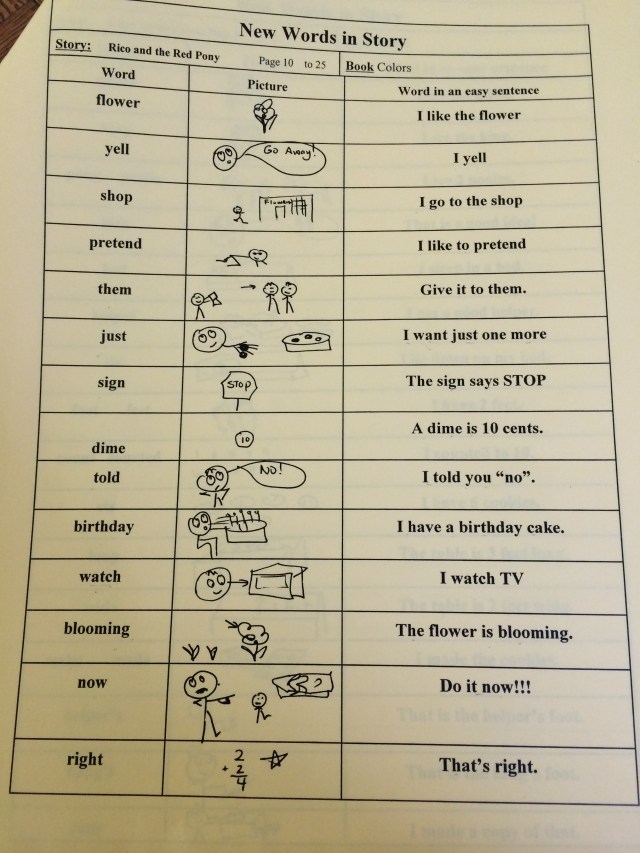 New Words in Story
Story: Rico and the Red Pony Page 10 to 25 Book Colors
Word Picture Word in an easy sentence
flower I like the flower
yell Go Away! I yell
shop Flowers I go to the shop
pretend I like to pretend
them Give it to them.
just I want just one more
sign STOP The sign says STOP
dime 10 A dime is 10 cents.
told NO! I told you “no”.
birthday I have a birthday cake.
watch I watch TV
blooming The flower is blooming.
now Do it now!!!
right 2 + 2 4 That’s right.